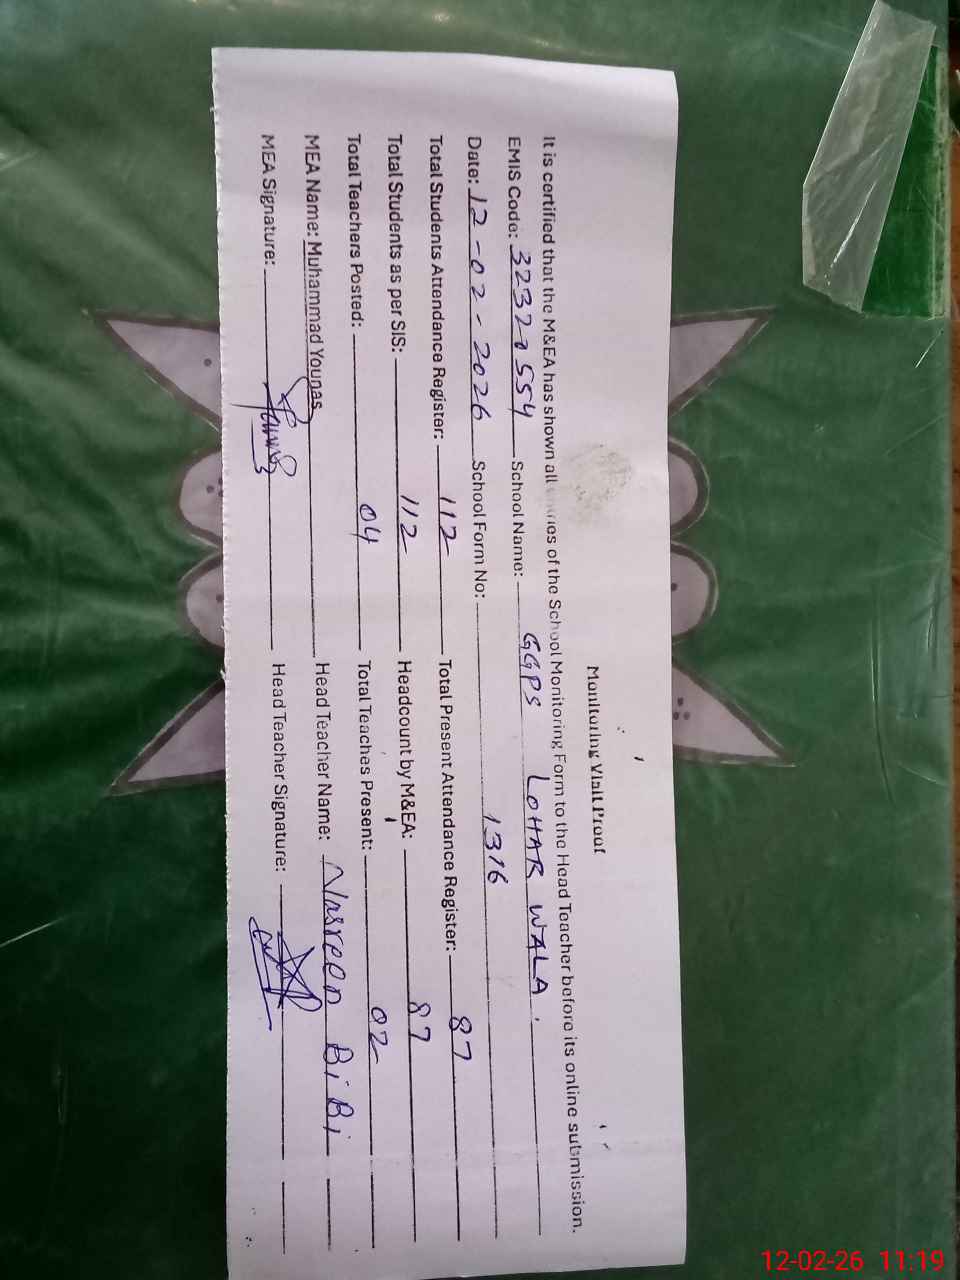 Monitoring Visit Proof
It is certified that the M&EA has shown all entries of the School Monitoring Form to the Head Teacher before its online submission.
EMIS Code: 32327554 School Name: GGPS LOHAR WALA.
Date: 12-02-2026 School Form No: 1316
Total Students Attendance Register: 112 Total Present Attendance Register: 87
Total Students as per SIS: 112 Headcount by M&EA: 87
Total Teachers Posted: 04 Total Teaches Present: 02
MEA Name: Muhammad Younas Head Teacher Name: Nasreen Bi Bi
MEA Signature: Head Teacher Signature:
12-02-26 11:19